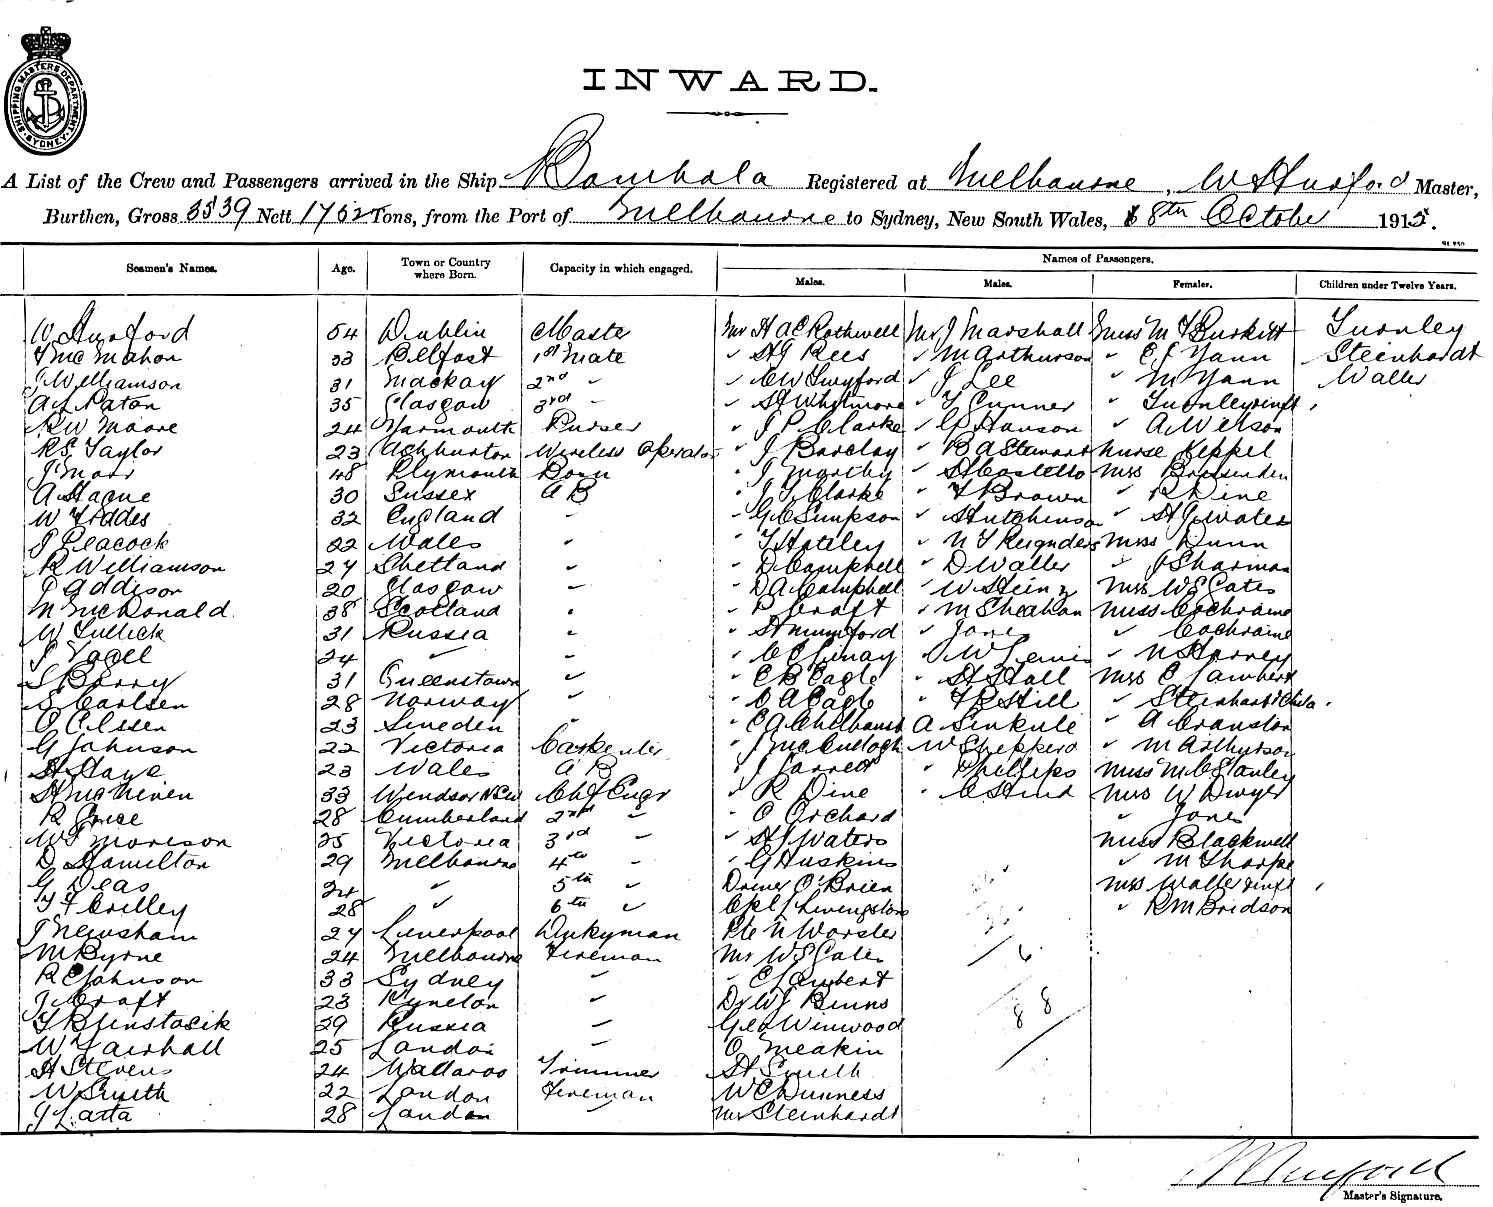 SHIPPING MASTERS DEPARTMENT SYDNEY
INWARD.
A List of the Crew and Passengers arrived in the Ship Bombala Registered at Melbourne, W Hurford Master,
Burthen, Gross 3539 Nett 1762 Tons, from the Port of Melbourne to Sydney, New South Wales, 18th October 1915.
Names of Passengers.
Seamen's Names. Age. Town or Country where Born. Capacity in which engaged. Males. Males. Females. Children under Twelve Years.
W Hurford 54 Dublin Master Mr H A C Rothwell Mr J Marshall Miss M Y Burkitt Turnley
T McMahon 33 Belfast 1st Mate " H G Rees " M Arthurson " Yann Steinhardt
J Williamson 31 Mackay 2nd " " C W Twyford " J Lee " M Yann Waller
A L Paton 35 Glasgow 3rd " " H Whitmore " T Gunner " Turnley & inft
R W Moore 24 Yarmouth Purser " J P Clarke " G Hanson " A Werson
R S Taylor 23 Ashburton Wireless Operator " J Barclay " B A Stewart Nurse Keppel
J Marr 48 Plymouth Bosn " J Worthy " H Costello Mrs Brissenden
A Hague 30 Sussex A B " J T Clarke " T Brown " R Dine
W Foddes 32 England " " G C Simpson " Hutchinson " H J Waters
J Peacock 22 Wales " " T Hateley " N T Reignders Miss Dunn
R Williamson 24 Shetland " " D Campbell " D Waller " J Sharman
P Addison 20 Glasgow " " D A Campbell " W Steinz Mrs W S Gates
M McDonald 38 Scotland " " P Croft " M Sheahan Miss Cochraine
W Tullick 31 Russia " " H Mumford " Jones " Cochraine
J Vagel 24 " " " C C Limay " W Lewis " N Harvey
S Barry 31 Queenstown " " C B Cagle " H Hall Mrs C Lambert
S Carlsen 28 Norway " " C A Cagle " T R Hill " Steinhardt & Child
O Olssen 23 Sweden " " C A Chelhaust A Sinkule " A Cranston
G Johnson 22 Victoria Carpenter " J McCullogh W Shepperd " M Arthurson
H Haye 23 Wales A B " J Jarrett " Phillips Miss M C Stanley
H McNiven 33 Windsor NSW Chf Engr " R Dine " C Hind Mrs W Dwyer
R Price 28 Cumberland 2nd " " C Orchard " Jones
W F Morison 25 Victoria 3rd " " H J Waters Miss Blackwell
D Hamilton 29 Melbourne 4th " " G Huskins " M Tharpe
G Deas 24 " 5th " Driver O'Brien Mrs Waller & inft
T F Crilley 28 " 6th " Cpl J Livingston " R M Bridson
J Newsham 24 Liverpool Dnkyman Pte N Worster
M Byrne 24 Melbourne Fireman Mr W S Gates 6
R C Johnson 33 Sydney " " C Lambert
J Croft 23 Kyneton " Dr W J Binns
T Blinstacik 29 Russia " Geo Winwood 88
W Fairhall 25 London " O Meakin
H Stevens 24 Wallaroo Trimmer H Smith
W Smith 22 London Fireman W C Dunness
J Latta 28 London " Mr Steinhardt
W Hurford
Master's Signature.